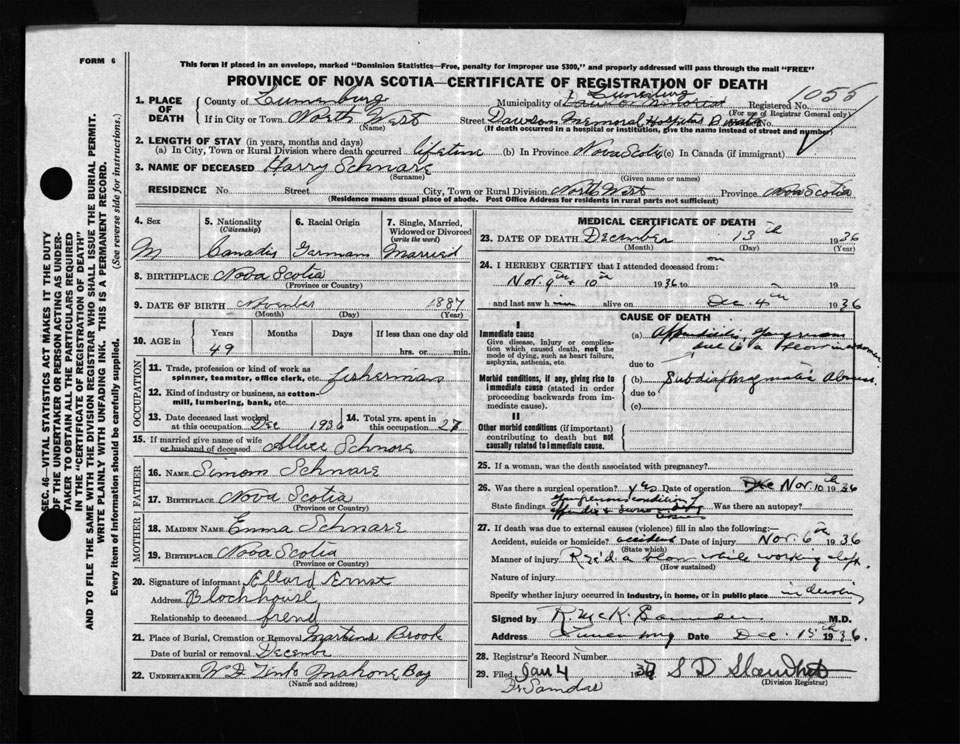 FORM 6
This form if placed in an envelope, marked "Dominion Statistics—Free, penalty for improper use $300," and properly addressed will pass through the mail "FREE"
PROVINCE OF NOVA SCOTIA—CERTIFICATE OF REGISTRATION OF DEATH
SEC. 46—VITAL STATISTICS ACT MAKES IT THE DUTY
OF THE UNDERTAKER OR PERSON ACTING AS UNDER-
TAKER TO OBTAIN ALL THE PARTICULARS REQUIRED
IN THE "CERTIFICATE OF REGISTRATION OF DEATH"
AND TO FILE THE SAME WITH THE DIVISION REGISTRAR WHO SHALL ISSUE THE BURIAL PERMIT.
WRITE PLAINLY WITH UNFADING INK. THIS IS A PERMANENT RECORD.
Every item of Information should be carefully supplied. (See reverse side for instructions.)
1. PLACE OF DEATH County of Lunenburg Municipality of Lunenburg Registered No. 1055
(For use of Registrar General only)
If in City or Town North West Street Dawson Memorial Hospital No.
(Name) (If death occurred in a hospital or institution, give the name instead of street and number)
2. LENGTH OF STAY (in years, months and days)
(a) In City, Town or Rural Division where death occurred lifetime (b) In Province Nova Scotia (c) In Canada (if immigrant)
3. NAME OF DECEASED Harry Schnare
(Surname) (Given name or names)
RESIDENCE No. Street City, Town or Rural Division North West Province Nova Scotia
(Residence means usual place of abode. Post Office Address for residents in rural parts not sufficient)
4. Sex M
5. Nationality (Citizenship) Canadia
6. Racial Origin Germans
7. Single, Married, Widowed or Divorced (write the word) Married
8. BIRTHPLACE Nova Scotia
(Province or Country)
9. DATE OF BIRTH November 1887
(Month) (Day) (Year)
10. AGE in Years Months Days If less than one day old
49 hrs. or min.
OCCUPATION
11. Trade, profession or kind of work as spinner, teamster, office clerk, etc. fisherman
12. Kind of industry or business, as cotton-mill, lumbering, bank, etc.
13. Date deceased last worked at this occupation Dec 1936
14. Total yrs. spent in this occupation 27
15. If married give name of wife or husband of deceased Allice Schnare
FATHER
16. NAME Simom Schnare
17. BIRTHPLACE Nova Scotia
(Province or Country)
MOTHER
18. MAIDEN NAME Emma Schnare
19. BIRTHPLACE Nova Scotia
(Province or Country)
20. Signature of informant Ellard Ernst
Address Blockhouse
Relationship to deceased frend
21. Place of Burial, Cremation or Removal Martins Brook
Date of burial or removal Decembe
22. UNDERTAKER Mahone Bay
(Name and address)
MEDICAL CERTIFICATE OF DEATH
23. DATE OF DEATH December 13th 1936
(Month) (Day) (Year)
24. I HEREBY CERTIFY that I attended deceased from on
Nov. 9th + 10th 1936 to 19
and last saw him alive on Dec. 4th 1936
CAUSE OF DEATH
I
Immediate cause
Give disease, injury or complication which caused death, not the mode of dying, such as heart failure, asphyxia, asthenia, etc.
(a) Appendicitis, gangrenous
due to a blow
due to
Morbid conditions, if any, giving rise to immediate cause (stated in order proceeding backwards from immediate cause).
(b) Subdiaphragmatic Abscess
due to
(c)
II
Other morbid conditions (if important) contributing to death but not causally related to immediate cause.
25. If a woman, was the death associated with pregnancy?
26. Was there a surgical operation? yes Date of operation Dec Nov. 10th 1936
State findings Gangrenous condition of Was there an autopsy?
27. If death was due to external causes (violence) fill in also the following:—
Accident, suicide or homicide? accident Date of injury Nov. 6th 1936
(State which)
Manner of injury Rec'd a blow while working
(How sustained)
Nature of injury
Specify whether injury occurred in industry, in home, or in public place in industry
Signed by R. McK. Saunders M.D.
Address Lunenburg Date Dec. 15th 1936.
28. Registrar's Record Number
29. Filed Jan 4 1937 S D
(Division Registrar)